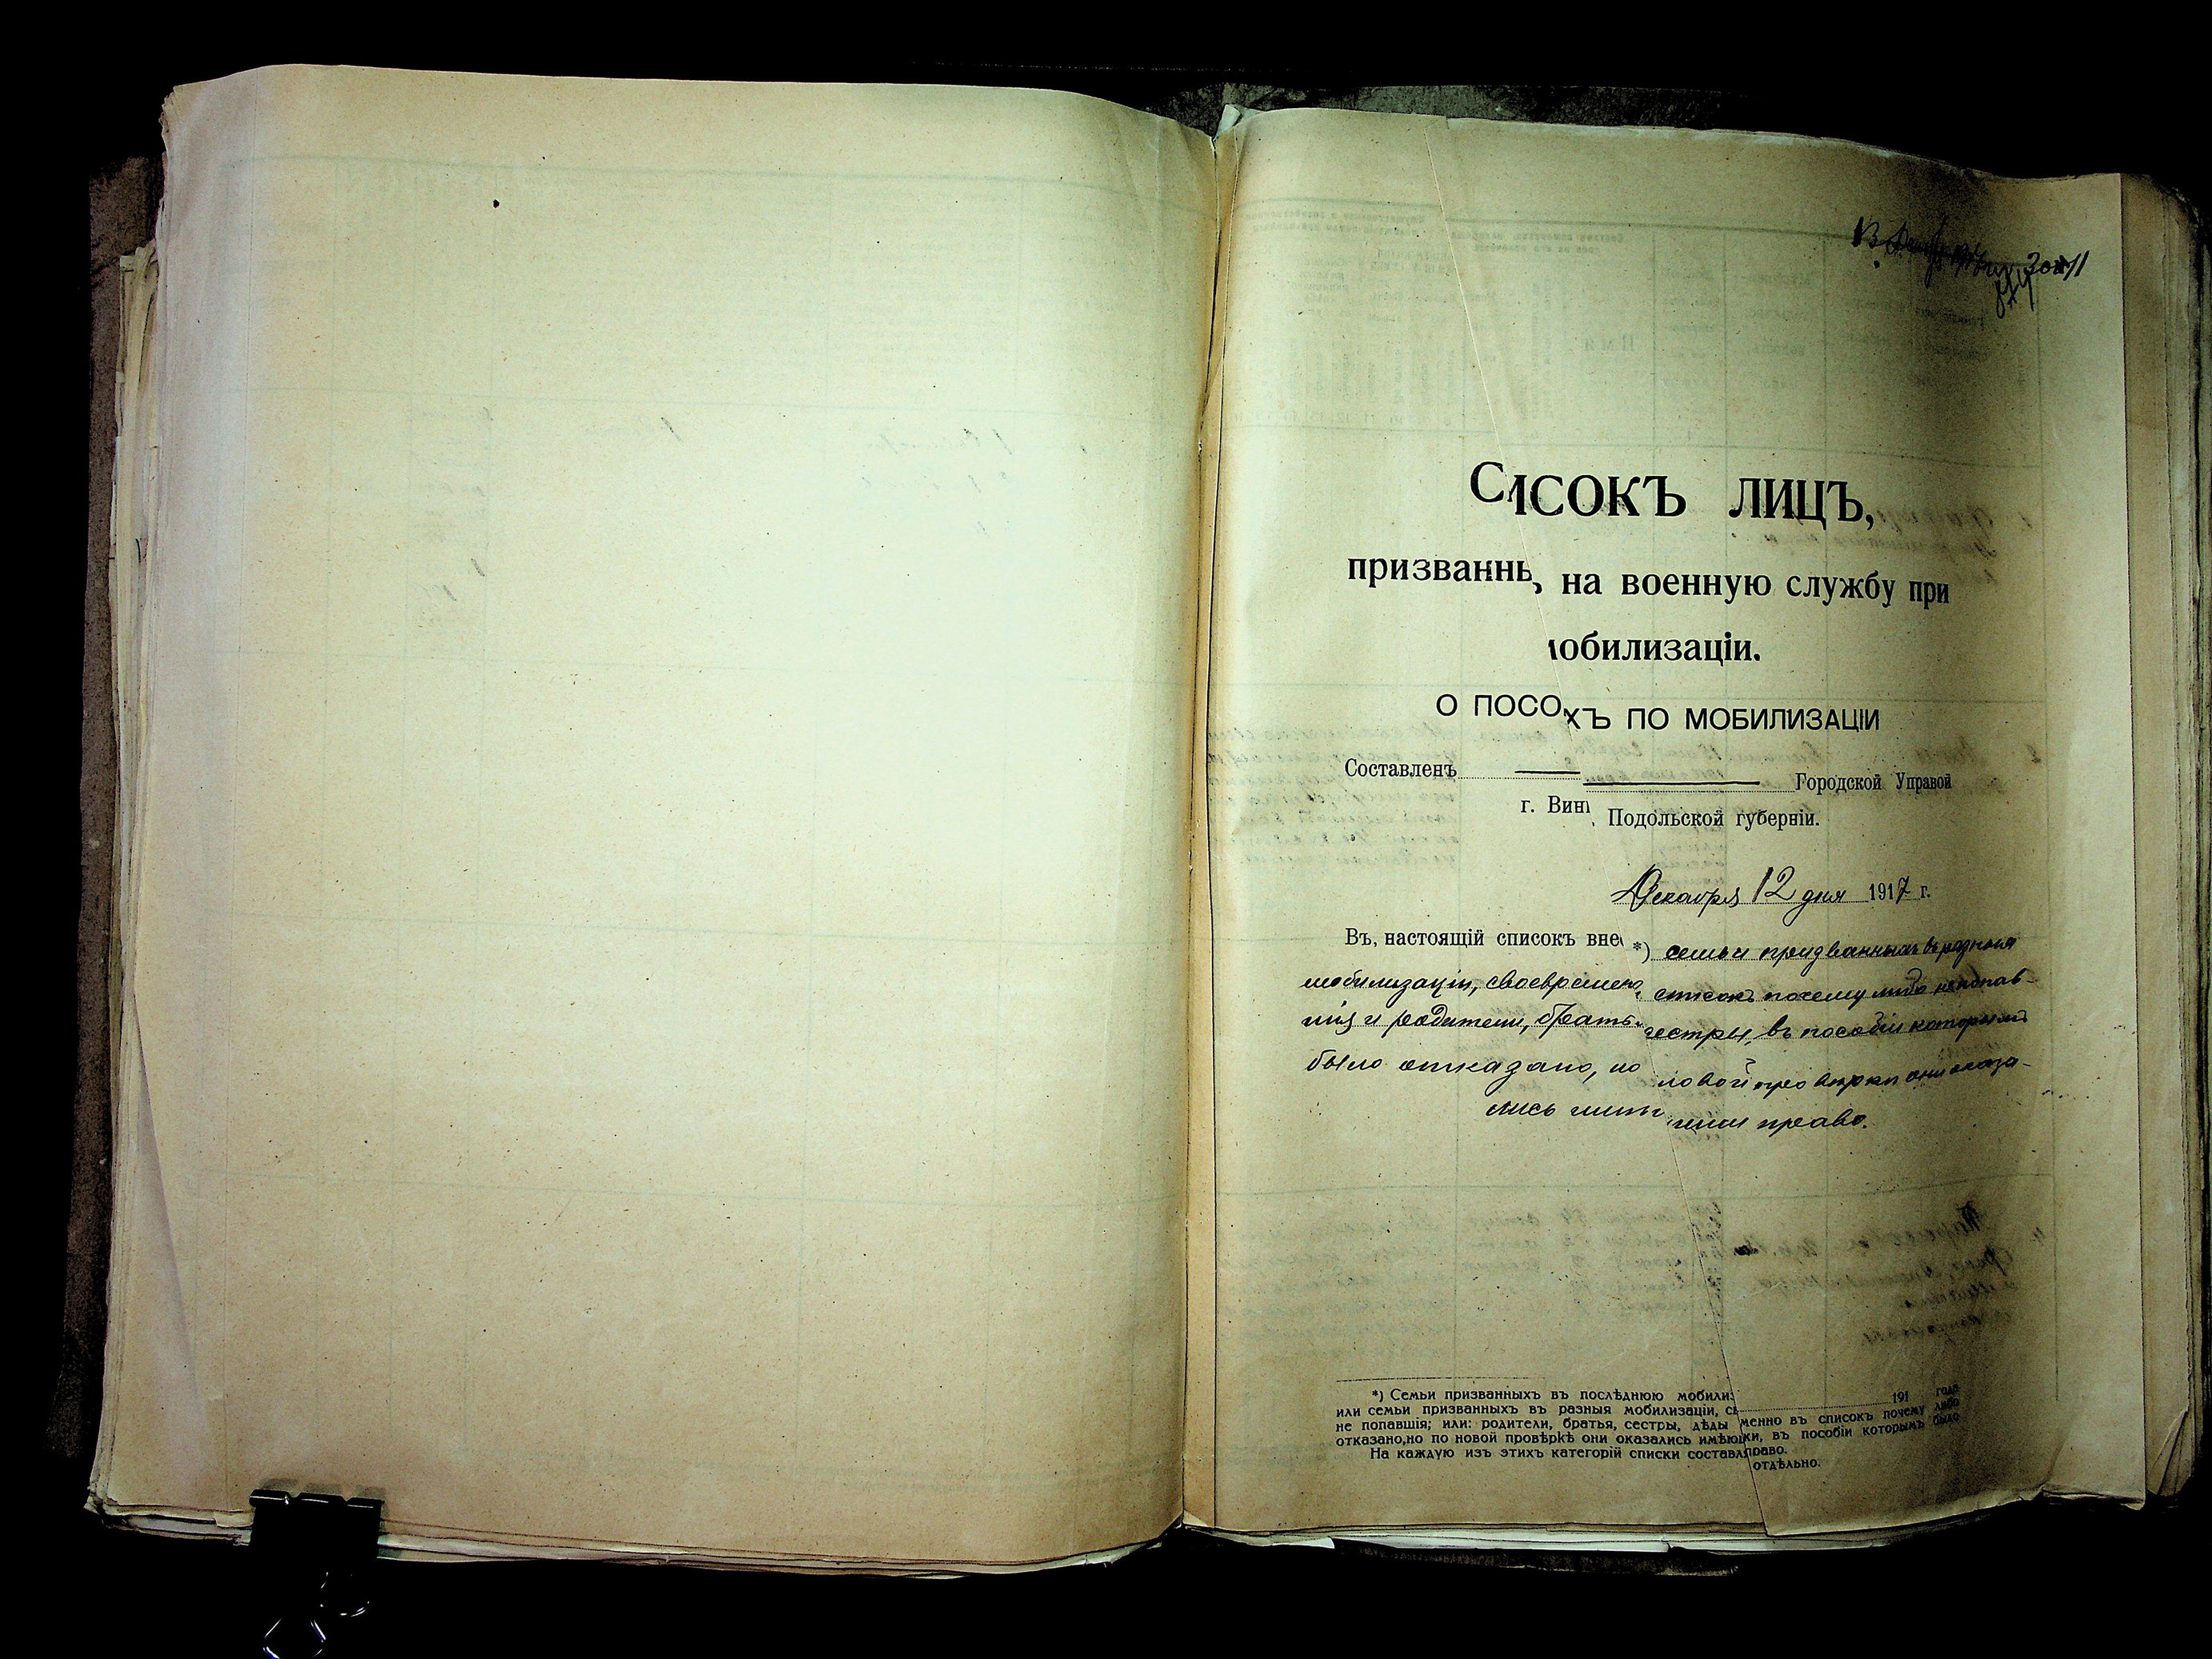 СИСОКЪ ЛИЦЪ,
призваннь, на военную службу при
мобилизаціи.
О ПОСО ХЪ ПО МОБИЛИЗАЦІИ
Составленъ Городской Управой
г. Вин Подольской губерніи.
Декабря 12 дня 1917 г.
Въ, настоящій списокъ вне *) семьи призванныхъ въ разныя
мобилизаціи, своевремен списокъ почему либо не попав-
шія и родители, братья сестры, въ пособіи которымъ
было отказано, но новой провѣркѣ они оказа-
лись имѣ щими право.
*) Семьи призванныхъ въ послѣднюю мобилиз 191 года
или семьи призванныхъ въ разныя мобилизаціи, св менно въ списокъ почему либо
не попавшія; или: родители, братья, сестры, дѣды ки, въ пособіи которымъ было
отказано,но по новой провѣркѣ они оказались имѣющ право.
На каждую изъ этихъ категорій списки составл отдѣльно.